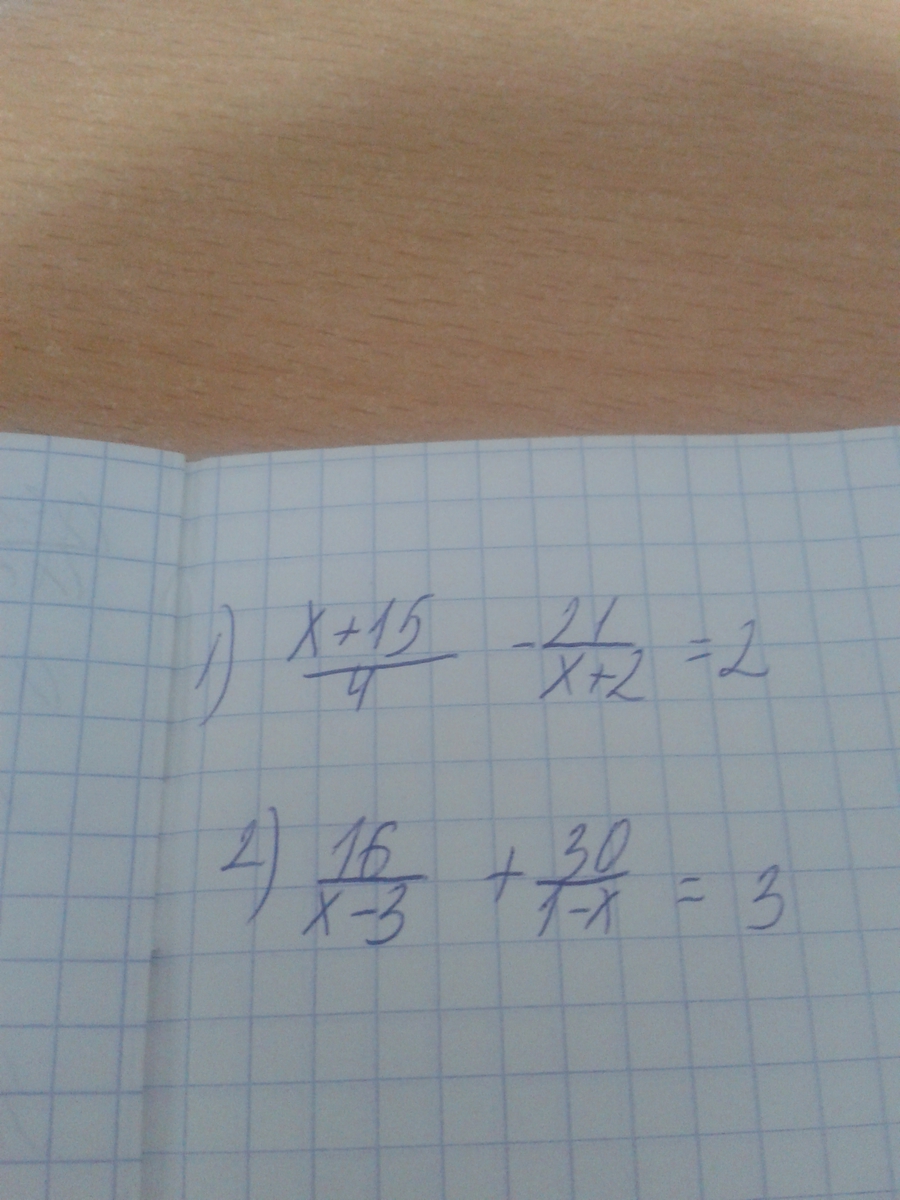 1) \frac{x+15}{4} - \frac{21}{x+2} = 2
2) \frac{16}{x-3} + \frac{30}{1-x} = 3